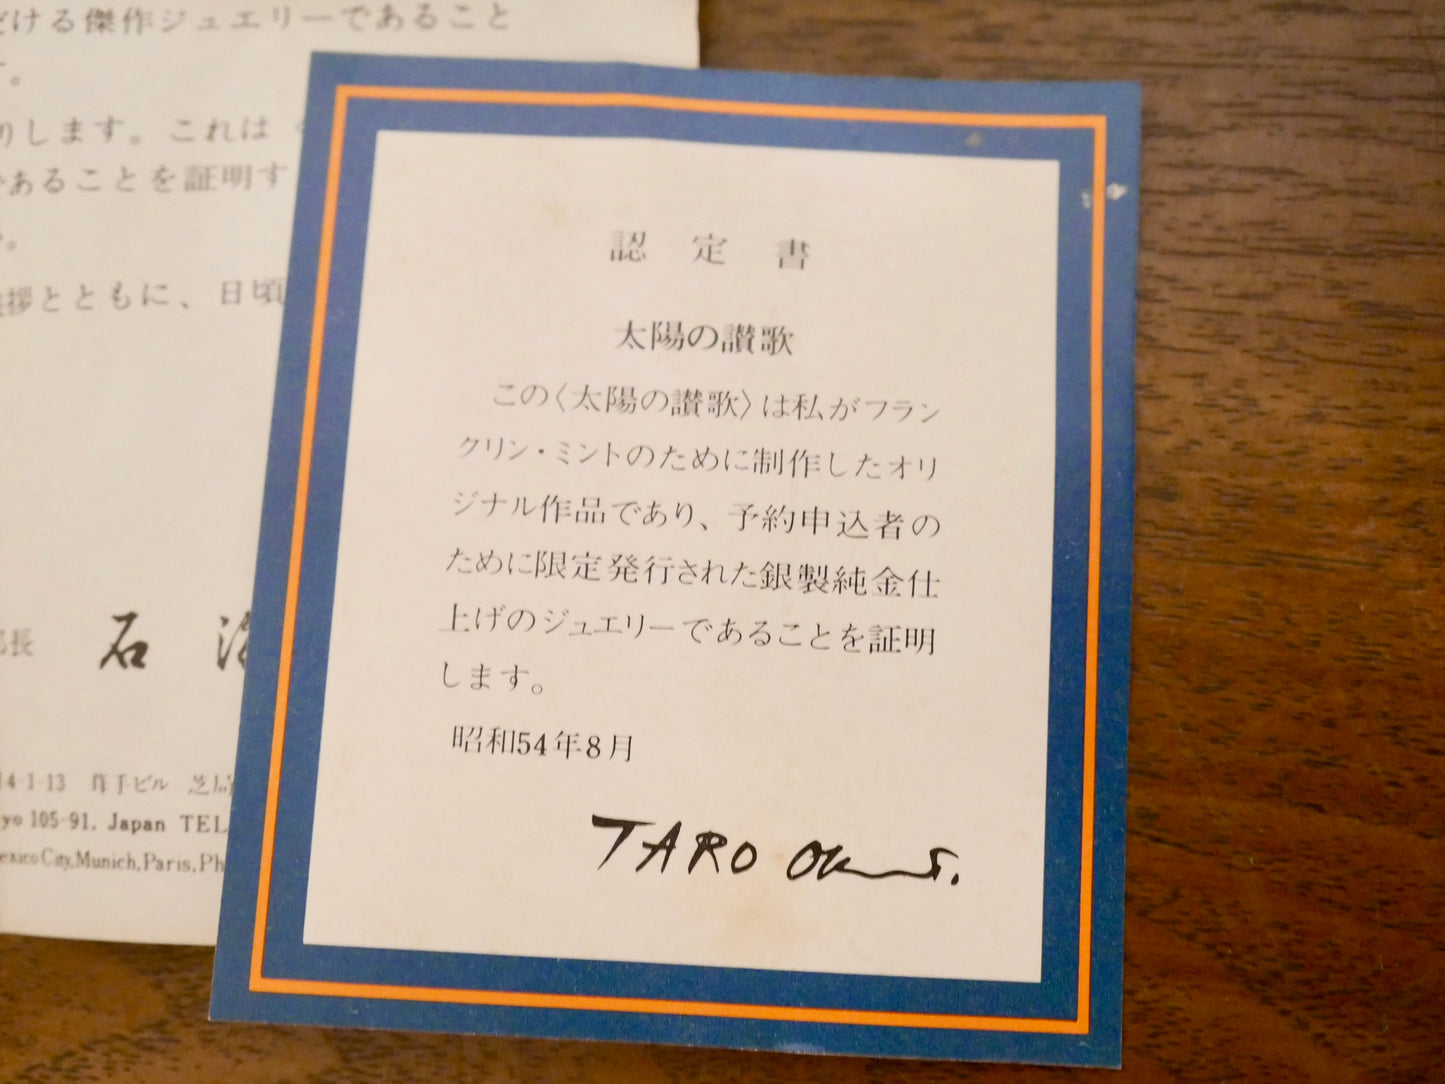 ける傑作ジュエリーであること
す。
りします。これは
であることを証明す
。
挨拶とともに、日頃
部長 石
4-1-13
yo 105-91, Japan TEL
exico City, Munich, Paris, Ph
認定書
太陽の讃歌
この〈太陽の讃歌〉は私がフラン
クリン・ミントのために制作したオリ
ジナル作品であり、予約申込者の
ために限定発行された銀製純金仕
上げのジュエリーであることを証明
します。
昭和54年8月
TARO OK